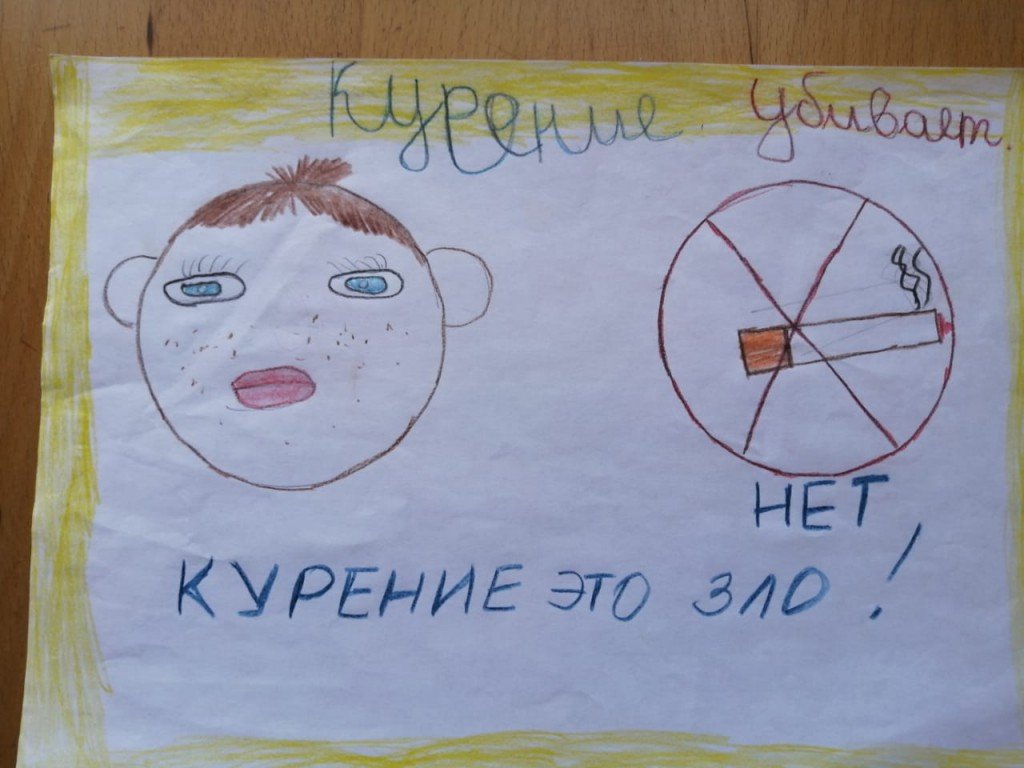 Курение убивает.
НЕТ
КУРЕНИЕ ЭТО ЗЛО!